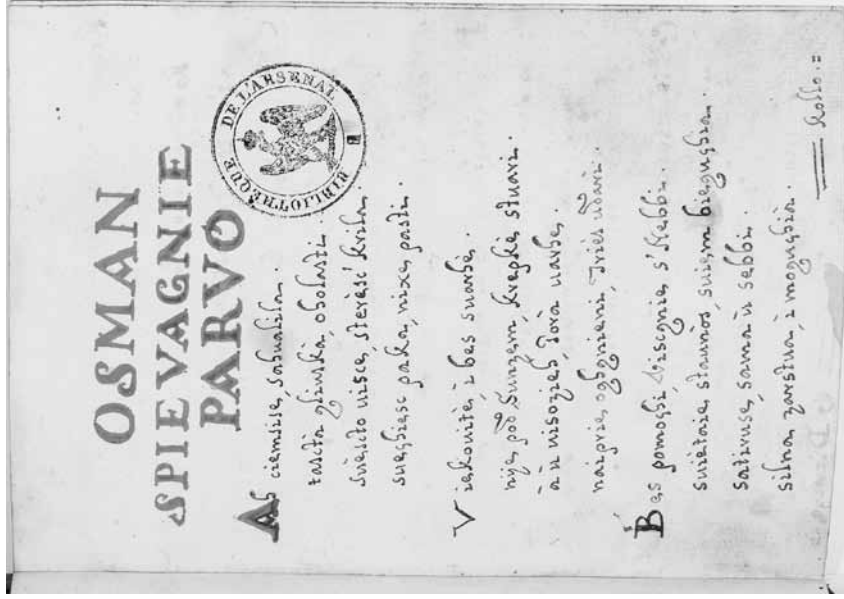 OSMAN
SPIEVAGNIE
PARVO
BIBLIOTHÈQUE DE L'ARSENAL
Ah ciemsise, sahualila.
tasctà gliuska, oholasti.
suescto uisce, steresc' krila.
sueghiesc paka, nixe, pasti.
Viekouitè, i bes suarhe,
nije, pod Sunzem, krepke, stuari.
a ù visozieh, Gorà uarhe,
naiprie, oghgnieni, Tries udari.
Bes pomoghi, Viscgnie, s' Nebbi.
suietaie, staunos, suiem biegughia.
satiruse, sama ù sebbi.
silna zarstua, i mogughia.
Kollo.=